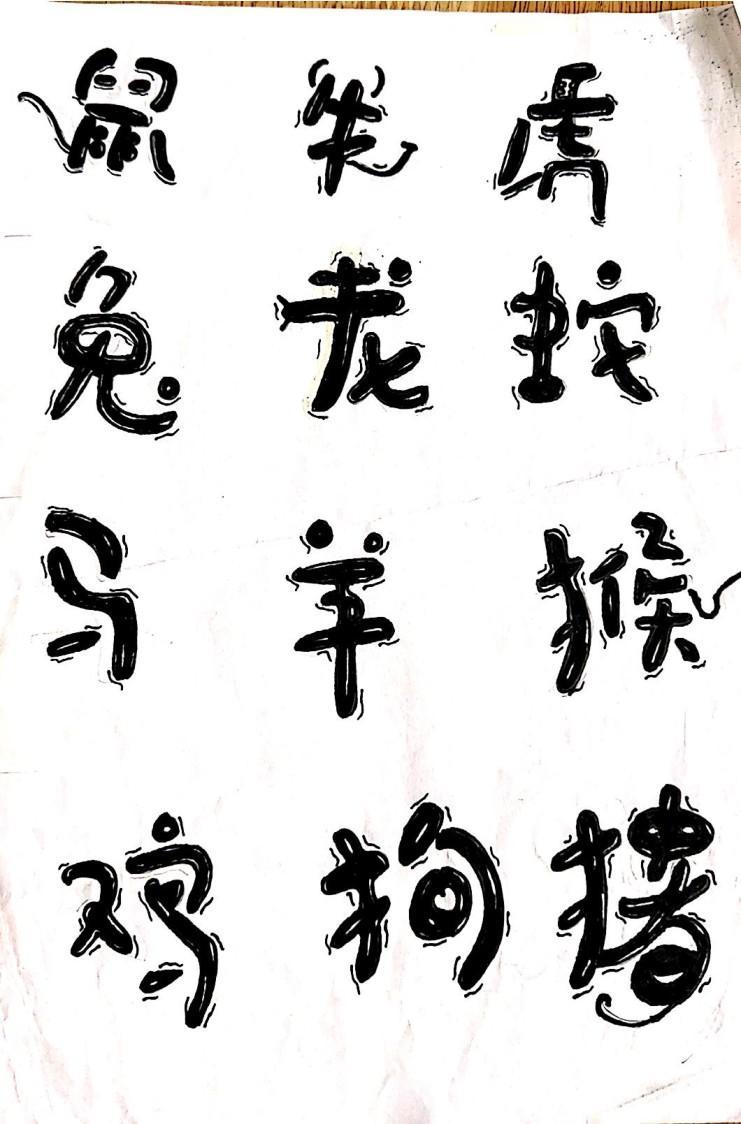 鼠 牛 虎
兔 龙 蛇
马 羊 猴
鸡 狗 猪